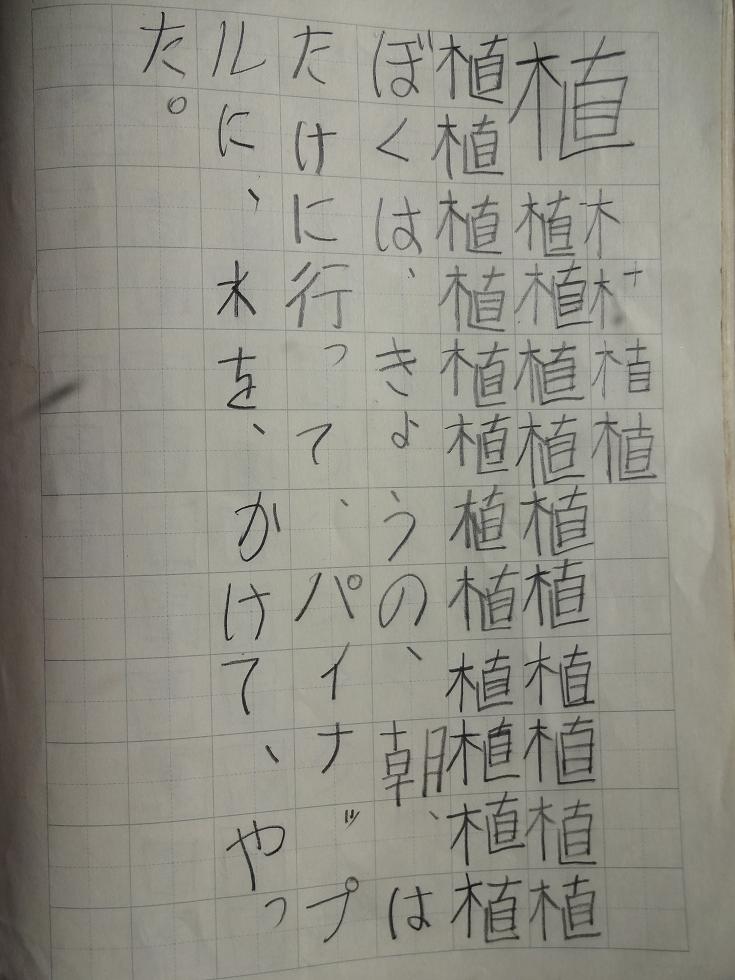 植木植
植植植植植植植植植植
植植植植植植植植植植植植
ぼくは、きょうの、朝、は
たけに行って、パイナップ
ルに、木を、かけて、やっ
た。